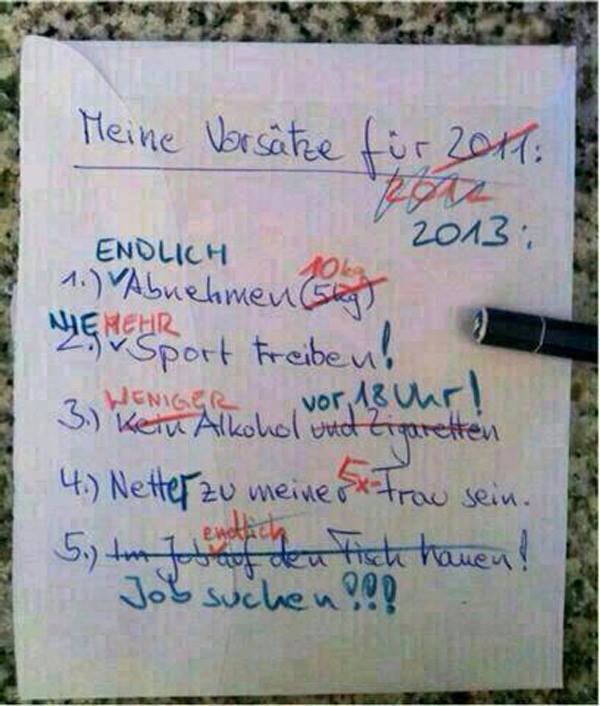 Meine Vorsätze für 2011:
2012
2013:
ENDLICH
10kg
1.) Abnehmen (5kg)
NIE MEHR
2.) Sport treiben!
WENIGER vor 18 Uhr!
3.) Kein Alkohol und Zigaretten
5x-
4.) Netter zu meiner Frau sein.
endlich
5.) Im Job auf den Tisch hauen!
Job suchen!!!